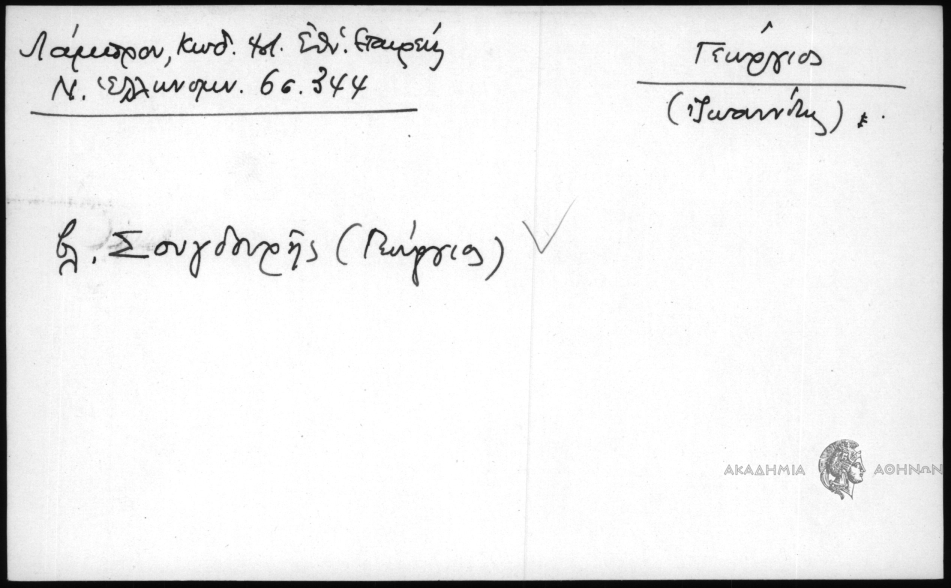 Λάμπρου, Κωδ. Ἱστ. Ἐθν. Ἑταιρείας
Ν. Ἑλληνομν. 6 σ. 344
Γεώργιος
(Ἰωαννίτης)
βλ. Σουγδουρῆς (Γεώργιος)
ΑΚΑΔΗΜΙΑ ΑΘΗΝΩΝ